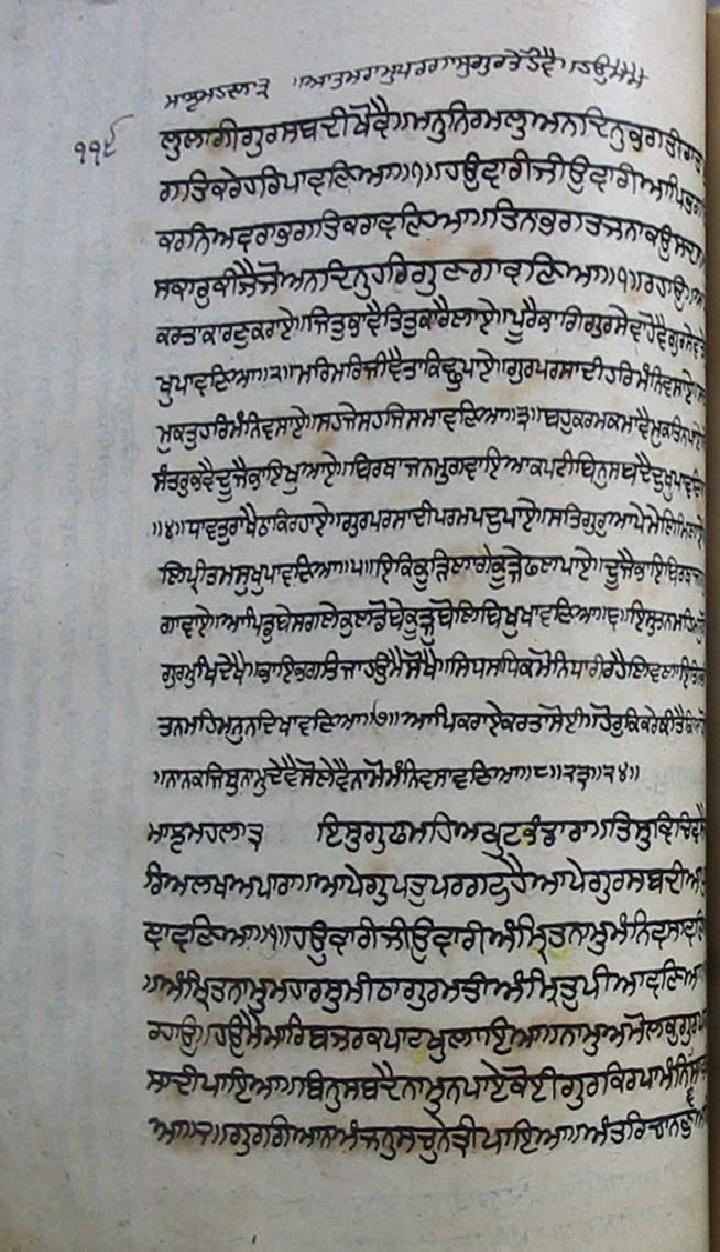 ਮਾਝਮਹਲਾ੩ ॥ਆਤਮਰਾਮੁਪਰਗਾਸੁਗੁਰਤੇਹੋਵੈ॥ਹਉਮੈਮੈ
੧੧੯
ਲੁਲਾਗੀਗੁਰਸਬਦੀਖੋਵੈ॥ਮਨੁਨਿਰਮਲੁਅਨਦਿਨੁਭਗਤੀਰਾਤਾ
ਗਤਿਕਰੇਹਰਿਪਾਵਣਿਆ॥੧॥ਹਉਵਾਰੀਜੀਉਵਾਰੀਆਪਿਭਗਤਿ
ਕਰਨਿਅਵਰਾਭਗਤਿਕਰਾਵਣਿਆ॥ਤਿਨਭਗਤਜਨਾਕਉਸਦਾਨਮ
ਸਕਾਰੁਕੀਜੈਜੋਅਨਦਿਨੁਹਰਿਗੁਣਗਾਵਣਿਆ॥੧॥ਰਹਾਉ॥ਆਪੇ
ਕਰਤਾਕਾਰਣੁਕਰਾਏ॥ਜਿਤੁਭਾਵੈਤਿਤੁਕਾਰੈਲਾਏ॥ਪੂਰੈਭਾਗਿਗੁਰਸੇਵਾਹੋਵੈਗੁਰਸੇਵਾਤੇਸੁ
ਖੁਪਾਵਣਿਆ॥੨॥ਮਰਿਮਰਿਜੀਵੈਤਾਕਿਛੁਪਾਏ॥ਗੁਰਪਰਸਾਦੀਹਰਿਮੰਨਿਵਸਾਏ॥ਸਦਾ
ਮੁਕਤੁਹਰਿਮੰਨਿਵਸਾਏ॥ਸਹਜੇਸਹਜਿਸਮਾਵਣਿਆ॥੩॥ਬਹੁਕਰਮਕਮਾਵੈਮੁਕਤਿਨਪਾਏ॥ਦੇ
ਸੰਤਰੁਭਵੈਦੂਜੈਭਾਇਖੁਆਏ॥ਬਿਰਥਾਜਨਮੁਗਵਾਇਆਕਪਟੀਬਿਨੁਸਬਦੈਦੁਖੁਪਾਵਣਿਆ
॥੪॥ਧਾਵਤੁਰਾਖੈਠਾਕਿਰਹਾਏ॥ਗੁਰਪਰਸਾਦੀਪਰਮਪਦੁਪਾਏ॥ਸਤਿਗੁਰੁਆਪੇਮੇਲਿਮਿਲਾਏਮਿ
ਲਿਪ੍ਰੀਤਮਸੁਖੁਪਾਵਣਿਆ॥੫॥ਇਕਿਕੂੜਿਲਾਗੇਕੂੜੇਫਲਪਾਏ॥ਦੂਜੈਭਾਇਬਿਰਥਾਜਨਮੁ
ਗਵਾਏ॥ਆਪਿਡੁਬੇਸਗਲੇਕੁਲਡੋਬੇਕੂੜੁਬੋਲਿਬਿਖੁਖਾਵਣਿਆ॥੬॥ਇਸੁਤਨਮਹਿਮਨੁਕੋ
ਗੁਰਮੁਖਿਦੇਖੈ॥ਭਾਇਭਗਤਿਜਾਹਉਮੈਸੋਖੈ॥ਸਿਧਸਾਧਿਕਮੋਨਿਧਾਰੀਰਹੈਲਿਵਲਾਇਤਿਨਭੀ
ਤਨਮਹਿਮਨੁਨਦਿਖਾਵਣਿਆ॥੭॥ਆਪਿਕਰਾਏਕਰਤਾਸੋਈ॥ਹੋਰੁਕਿਕਰੇਕੀਤੈਕਿਆਹੋਈ
॥ਨਾਨਕਜਿਸੁਨਾਮੁਦੇਵੈਸੋਲੇਵੈਨਾਮੋਮੰਨਿਵਸਾਵਣਿਆ॥੮॥੨੩॥੨੪॥
ਮਾਝਮਹਲਾ੩ ਇਸੁਗੁਫਾਮਹਿਅਖੁਟਭੰਡਾਰਾ॥ਤਿਸੁਵਿਚਿਵਸੈ
ਹਰਿਅਲਖਅਪਾਰਾ॥ਆਪੇਗੁਪਤੁਪਰਗਟੁਹੈਆਪੇਗੁਰਸਬਦੀਆਪੁ
ਵਾਵਣਿਆ॥੧॥ਹਉਵਾਰੀਜੀਉਵਾਰੀਅੰਮ੍ਰਿਤਨਾਮੁਮੰਨਿਵਸਾਵਣਿ
॥ਅੰਮ੍ਰਿਤਨਾਮੁਮਹਾਰਸੁਮੀਠਾਗੁਰਮਤੀਅੰਮ੍ਰਿਤੁਪੀਆਵਣਿਆ
ਰਹਾਉ॥ਹਉਮੈਮਾਰਿਬਜਰਕਪਾਟਖੁਲਾਇਆ॥ਨਾਮੁਅਮੋਲਕੁਗੁਰਪਰ
ਸਾਦੀਪਾਇਆ॥ਬਿਨੁਸਬਦੈਨਾਮੁਨਪਾਏਕੋਈਗੁਰਕਿਰਪਾਮੰਨਿਵਸਾ
ਆ॥੨॥ਗੁਰਗਿਆਨਅੰਜਨੁਸਚੁਨੇਤ੍ਰੀਪਾਇਆ॥ਅੰਤਰਿਚਾਨਣੁ